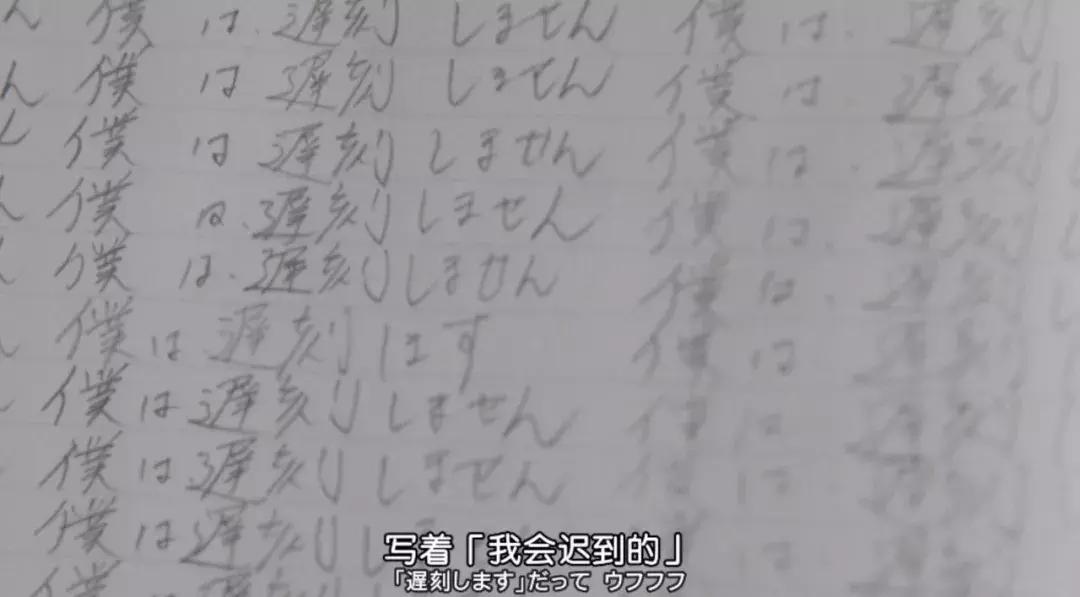 ん 僕は、遅刻しません 僕は、遅刻
ん 僕は遅刻しません 僕は、遅刻
ん 僕は遅刻しません 僕は、遅刻
ん 僕は、遅刻しません 僕は、遅刻
僕は、遅刻しません 僕は、遅刻
僕は遅刻します 僕は遅刻
僕は遅刻しません
僕は遅刻しません
僕は遅刻し
写着「我会迟到的」
「遅刻します」だって ウフフフ